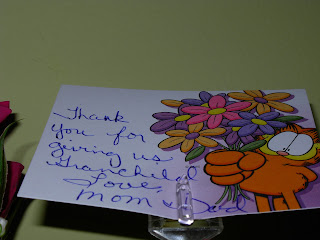 Thank
you for
giving us
Granchild
Love,
Mom & Dad